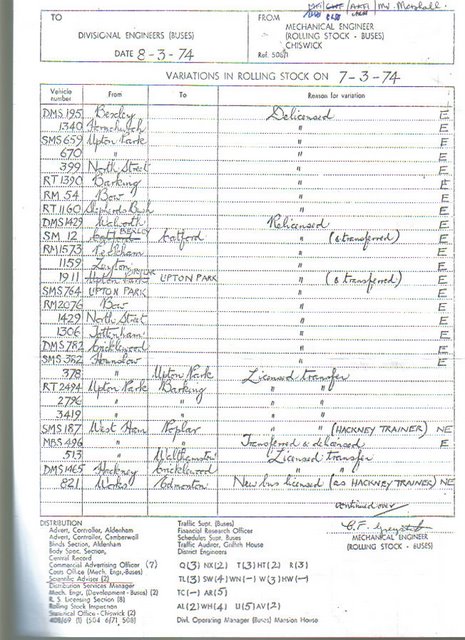 TO
DIVISIONAL ENGINEERS (BUSES)
DATE 8-3-74
FROM
MECHANICAL ENGINEER
(ROLLING STOCK - BUSES)
CHISWICK
Mr. Marshall.
VARIATIONS IN ROLLING STOCK ON 7-3-74
Vehicle number From To Reason for variation
DMS 195 Bexley Delicensed E
1340 Hornchurch " E
SMS 659 Upton Park " E
670 " " E
399 North Street " E
RT 1390 Barking " E
RM 54 Bow " E
RT 1160 Shepherds Bush " E
DMS 1429 Walworth Relicensed E
SM 12 Catford BEXLEY Catford " (& transferred) E
RM 1573 Peckham " E
1159 Leyton " E
1911 Upton Park UPTON PARK " (& transferred) E
SMS 764 UPTON PARK " E
RM 2076 Bow " E
1429 North Street " E
1306 Tottenham " E
DMS 782 Cricklewood " E
SMS 352 Hounslow " E
378 " Upton Park Licensed transfer
RT 2494 Upton Park Barking " "
2796 " " " "
3419 " " " "
SMS 187 West Ham Poplar " " (HACKNEY TRAINER) NE
MBS 496 " " Transferred & delicensed E
513 " Walthamstow Licensed transfer
DMS 1465 Hackney Cricklewood " "
821 Works Edmonton New bus licensed (as HACKNEY TRAINER) NE
continued over
MECHANICAL ENGINEER
(ROLLING STOCK - BUSES)
DISTRIBUTION
Advert. Controller, Aldenham
Advert. Controller, Camberwell
Blinds Section, Aldenham
Body Spec. Section,
Central Record
Commercial Advertising Officer (7)
Costs Office (Mech. Engr.-Buses)
Scientific Adviser (2)
Distribution Services Manager
Mech. Engr. (Development - Buses) (2)
R. S. Licensing Section (8)
Rolling Stock Inspection
Statistical Office - Chiswick (2)
Traffic Supt. (Buses)
Financial Research Officer
Schedules Supt. Buses
Traffic Auditor, Griffith House
District Engineers
Q(3) NX(2) T(3) HT(2) R(3)
TL(3) SW(4) WN(-) W(3) HW(-)
TC(-) AR(5)
AL(2) WH(4) U(5) AV(2)
Divl. Operating Manager (Buses) Mansion House